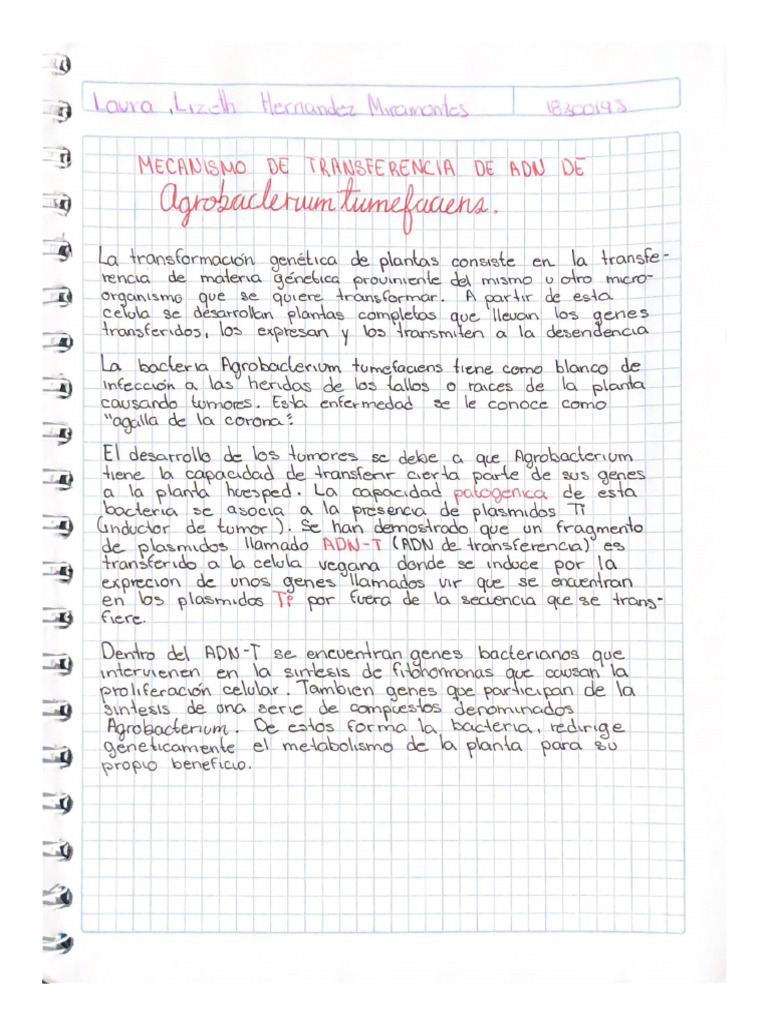 Laura Lizeth Hernandez Miramontes 18300193
MECANISMO DE TRANSFERENCIA DE ADN DE
Agrobacterium tumefaciens.
La transformación genética de plantas consiste en la transfe-
rencia de materia génetica proviniente del mismo u otro micro-
organismo que se quiere transformar. A partir de esta
celula se desarrollan plantas completas que llevan los genes
transferidos, los expresan y los transmiten a la desendencia
La bacteria Agrobacterium tumefaciens tiene como blanco de
infección a las heridas de los tallos o raices de la planta
causando tumores. Esta enfermedad se le conoce como
"agalla de la corona".
El desarrollo de los tumores se debe a que Agrobacterium
tiene la capacidad de transferir cierta parte de sus genes
a la planta huesped. La capacidad patogenica de esta
bacteria se asocia a la presencia de plasmidos Ti
(inductor de tumor). Se han demostrado que un fragmento
de plasmidos llamado ADN-T (ADN de transferencia) es
transferido a la celula vegana donde se induce por la
exprecion de unos genes llamados vir que se encuentran
en los plasmidos Ti por fuera de la secuencia que se trans-
fiere.
Dentro del ADN-T se encuentran genes bacterianos que
intervienen en la sintesis de fitohormonas que causan la
proliferación celular. Tambien genes que participan de la
sintesis de una serie de compuestos denominados
Agrobacterium. De estos forma la bacteria, redirige
geneticamente el metabolismo de la planta para su
propio beneficio.